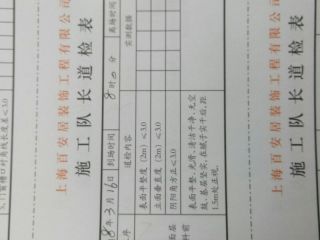 、门窗槽口对角线长度差≤3.0
上海百安居装饰工程有限公司
施工队长道检表
8年3月16日 到场时间 8时0分 离场时间
道检内容 实测数据
表面平整度（2m）≤3.0
立面垂直度（2m）≤3.0
阴阳角方正≤3.0
表面平整、光滑、清洁干净，无空
鼓，基层坚实，在腻子实干后，距
1.5m处正视。
上海百安居装饰工程有限公司
施工队长道检表